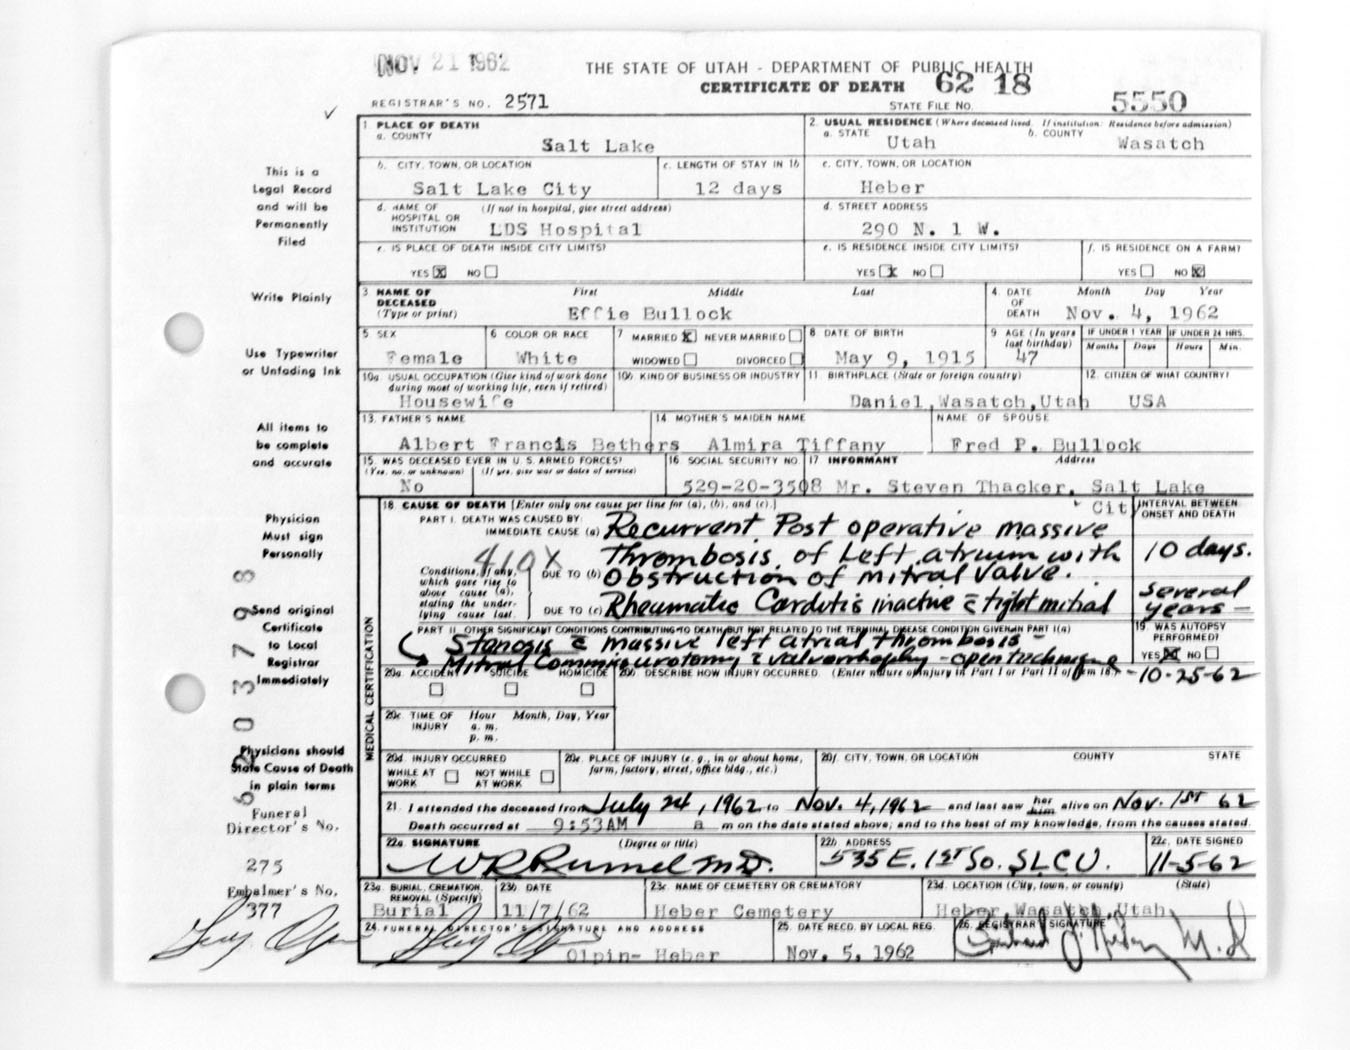 NOV. 21 1962
THE STATE OF UTAH - DEPARTMENT OF PUBLIC HEALTH
CERTIFICATE OF DEATH 62 18
REGISTRAR'S NO. 2571
STATE FILE NO. 5550
This is a
Legal Record
and will be
Permanently
Filed
1. PLACE OF DEATH
a. COUNTY
Salt Lake
2. USUAL RESIDENCE (Where deceased lived. If institution: Residence before admission)
a. STATE b. COUNTY
Utah Wasatch
b. CITY, TOWN, OR LOCATION c. LENGTH OF STAY IN 1b c. CITY, TOWN, OR LOCATION
Salt Lake City 12 days Heber
d. NAME OF HOSPITAL OR INSTITUTION (If not in hospital, give street address) d. STREET ADDRESS
LDS Hospital 290 N. 1 W.
e. IS PLACE OF DEATH INSIDE CITY LIMITS? e. IS RESIDENCE INSIDE CITY LIMITS? f. IS RESIDENCE ON A FARM?
YES X NO YES X NO YES NO X
Write Plainly
3. NAME OF DECEASED (Type or print) First Middle Last 4. DATE OF DEATH Month Day Year
Effie Bullock Nov. 4, 1962
Use Typewriter
or Unfading Ink
5. SEX 6. COLOR OR RACE 7. MARRIED X NEVER MARRIED 8. DATE OF BIRTH 9. AGE (In years last birthday) IF UNDER 1 YEAR IF UNDER 24 HRS.
Months Days Hours Min.
Female White WIDOWED DIVORCED May 9, 1915 47
10a. USUAL OCCUPATION (Give kind of work done during most of working life, even if retired) 10b. KIND OF BUSINESS OR INDUSTRY 11. BIRTHPLACE (State or foreign country) 12. CITIZEN OF WHAT COUNTRY?
Housewife Daniel, Wasatch, Utah USA
All items to
be complete
and accurate
13. FATHER'S NAME 14. MOTHER'S MAIDEN NAME NAME OF SPOUSE
Albert Francis Bethers Almira Tiffany Fred P. Bullock
15. WAS DECEASED EVER IN U. S. ARMED FORCES? 16. SOCIAL SECURITY NO. 17. INFORMANT Address
(Yes, no, or unknown) (If yes, give war or dates of service)
No 529-20-3508 Mr. Steven Thacker, Salt Lake
City
Physician
Must sign
Personally
18. CAUSE OF DEATH [Enter only one cause per line for (a), (b), and (c).] INTERVAL BETWEEN ONSET AND DEATH
PART I. DEATH WAS CAUSED BY:
IMMEDIATE CAUSE (a) Recurrent Post operative massive
410X Thrombosis of Left atrium with 10 days.
Conditions, if any, which gave rise to above cause (a), stating the underlying cause last.
DUE TO (b) Obstruction of mitral valve.
DUE TO (c) Rheumatic Carditis inactive c̄ tight mitral several years -
PART II. OTHER SIGNIFICANT CONDITIONS CONTRIBUTING TO DEATH BUT NOT RELATED TO THE TERMINAL DISEASE CONDITION GIVEN IN PART I(a)
Stenosis c̄ massive left atrial thrombosis -
Mitral Commissurotomy c̄ valvorrhaphy - open technique - 10-25-62
19. WAS AUTOPSY PERFORMED?
YES X NO
Send original
Certificate
to Local
Registrar
Immediately
6203798
MEDICAL CERTIFICATION
20a. ACCIDENT SUICIDE HOMICIDE 20b. DESCRIBE HOW INJURY OCCURRED. (Enter nature of injury in Part I or Part II of item 18.)
20c. TIME OF INJURY Hour Month, Day, Year
a. m.
p. m.
Physicians should
State Cause of Death
in plain terms
20d. INJURY OCCURRED 20e. PLACE OF INJURY (e. g., in or about home, farm, factory, street, office bldg., etc.) 20f. CITY, TOWN, OR LOCATION COUNTY STATE
WHILE AT WORK NOT WHILE AT WORK
21. I attended the deceased from July 24, 1962 to Nov. 4, 1962 and last saw her him alive on Nov. 1st 62
Death occurred at 9:53AM a m on the date stated above; and to the best of my knowledge, from the causes stated.
Funeral
Director's No.
275
22a. SIGNATURE (Degree or title) 22b. ADDRESS 22c. DATE SIGNED
W R Rumel M.D. 535 E. 1st So. SLCU. 11-5-62
Embalmer's No.
377
23a. BURIAL, CREMATION, REMOVAL (Specify) 23b. DATE 23c. NAME OF CEMETERY OR CREMATORY 23d. LOCATION (City, town, or county) (State)
Burial 11/7/62 Heber Cemetery Heber Wasatch Utah
24. FUNERAL DIRECTOR'S SIGNATURE AND ADDRESS 25. DATE RECD. BY LOCAL REG. 26. REGISTRAR'S SIGNATURE
Olpin- Heber Nov. 5, 1962